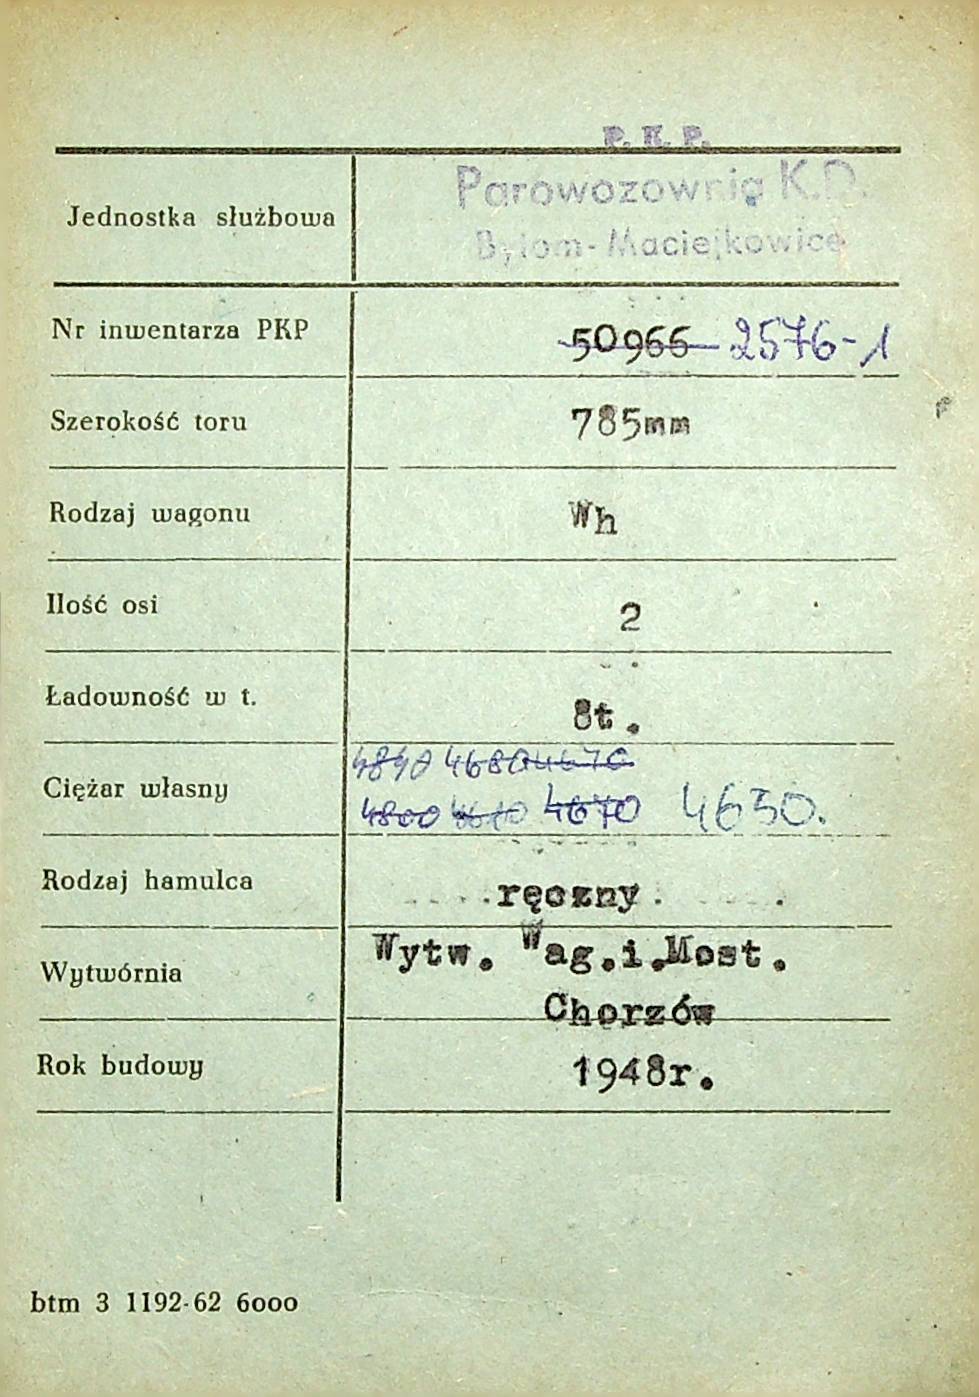 P. K. P.
Jednostka służbowa Parowozownia K.D.
Bytom-Maciejkowice
Nr inwentarza PKP 50966 2576-1
Szerokość toru 785mm
Rodzaj wagonu Wh
Ilość osi 2
Ładowność w t. 8t.
4680 4670
Ciężar własny 4800 4670 4650.
Rodzaj hamulca ręczny
Wytw. Wag.i.Most.
Wytwórnia
Chorzów
Rok budowy 1948r.
btm 3 1192-62 6000